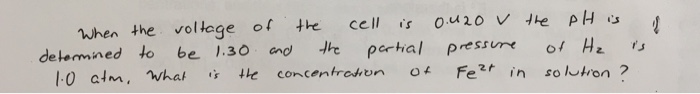 When the voltage of the cell is 0.420 V the pH is
determined to be 1.30 and the partial pressure of H₂ is
1.0 atm. What is the concentration of Fe²⁺ in solution?